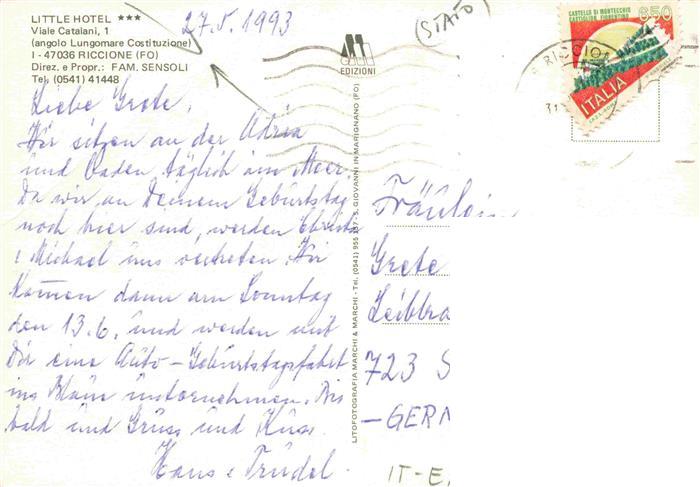 LITTLE HOTEL ***
Viale Catalani, 1
(angolo Lungomare Costituzione)
I - 47036 RICCIONE (FO)
Direz. e Propr.: FAM. SENSOLI
Tel. (0541) 41448
27.5.1993
(STATO)
ARTI
EDIZIONI
CASTELLO DI MONTECCHIO
CASTIGLION FIORENTINO
650
ITALIA
RICCIO
31
Liebe Grete,
Wir sitzen an der Adria
und baden täglich im Meer.
Da wir an Deinem Geburtstag
noch hier sind, werden Christa
+ Michael uns vertreten. Wir
kommen dann am Sonntag
den 13.6. und werden mit
Dir eine Auto-Geburtstagsfahrt
ins Blaue unternehmen. Bis
bald und Gruss und Kuss.
Hans + Trudel.
LITOFOTOGRAFIA MARCHI & MARCHI - Tel. (0541) 955 - S. GIOVANNI IN MARIGNANO (FO)
Fräulein
Grete
Leibbra
723 S
-GERM
IT-E.